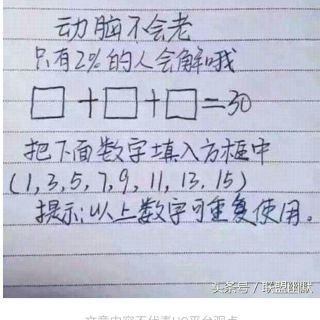 动脑不会老
只有2%的人会解哦
□+□+□=30
把下面数字填入方框中
(1,3,5,7,9,11,13,15)
提示:以上数字可重复使用。
头条号/联盟幽默